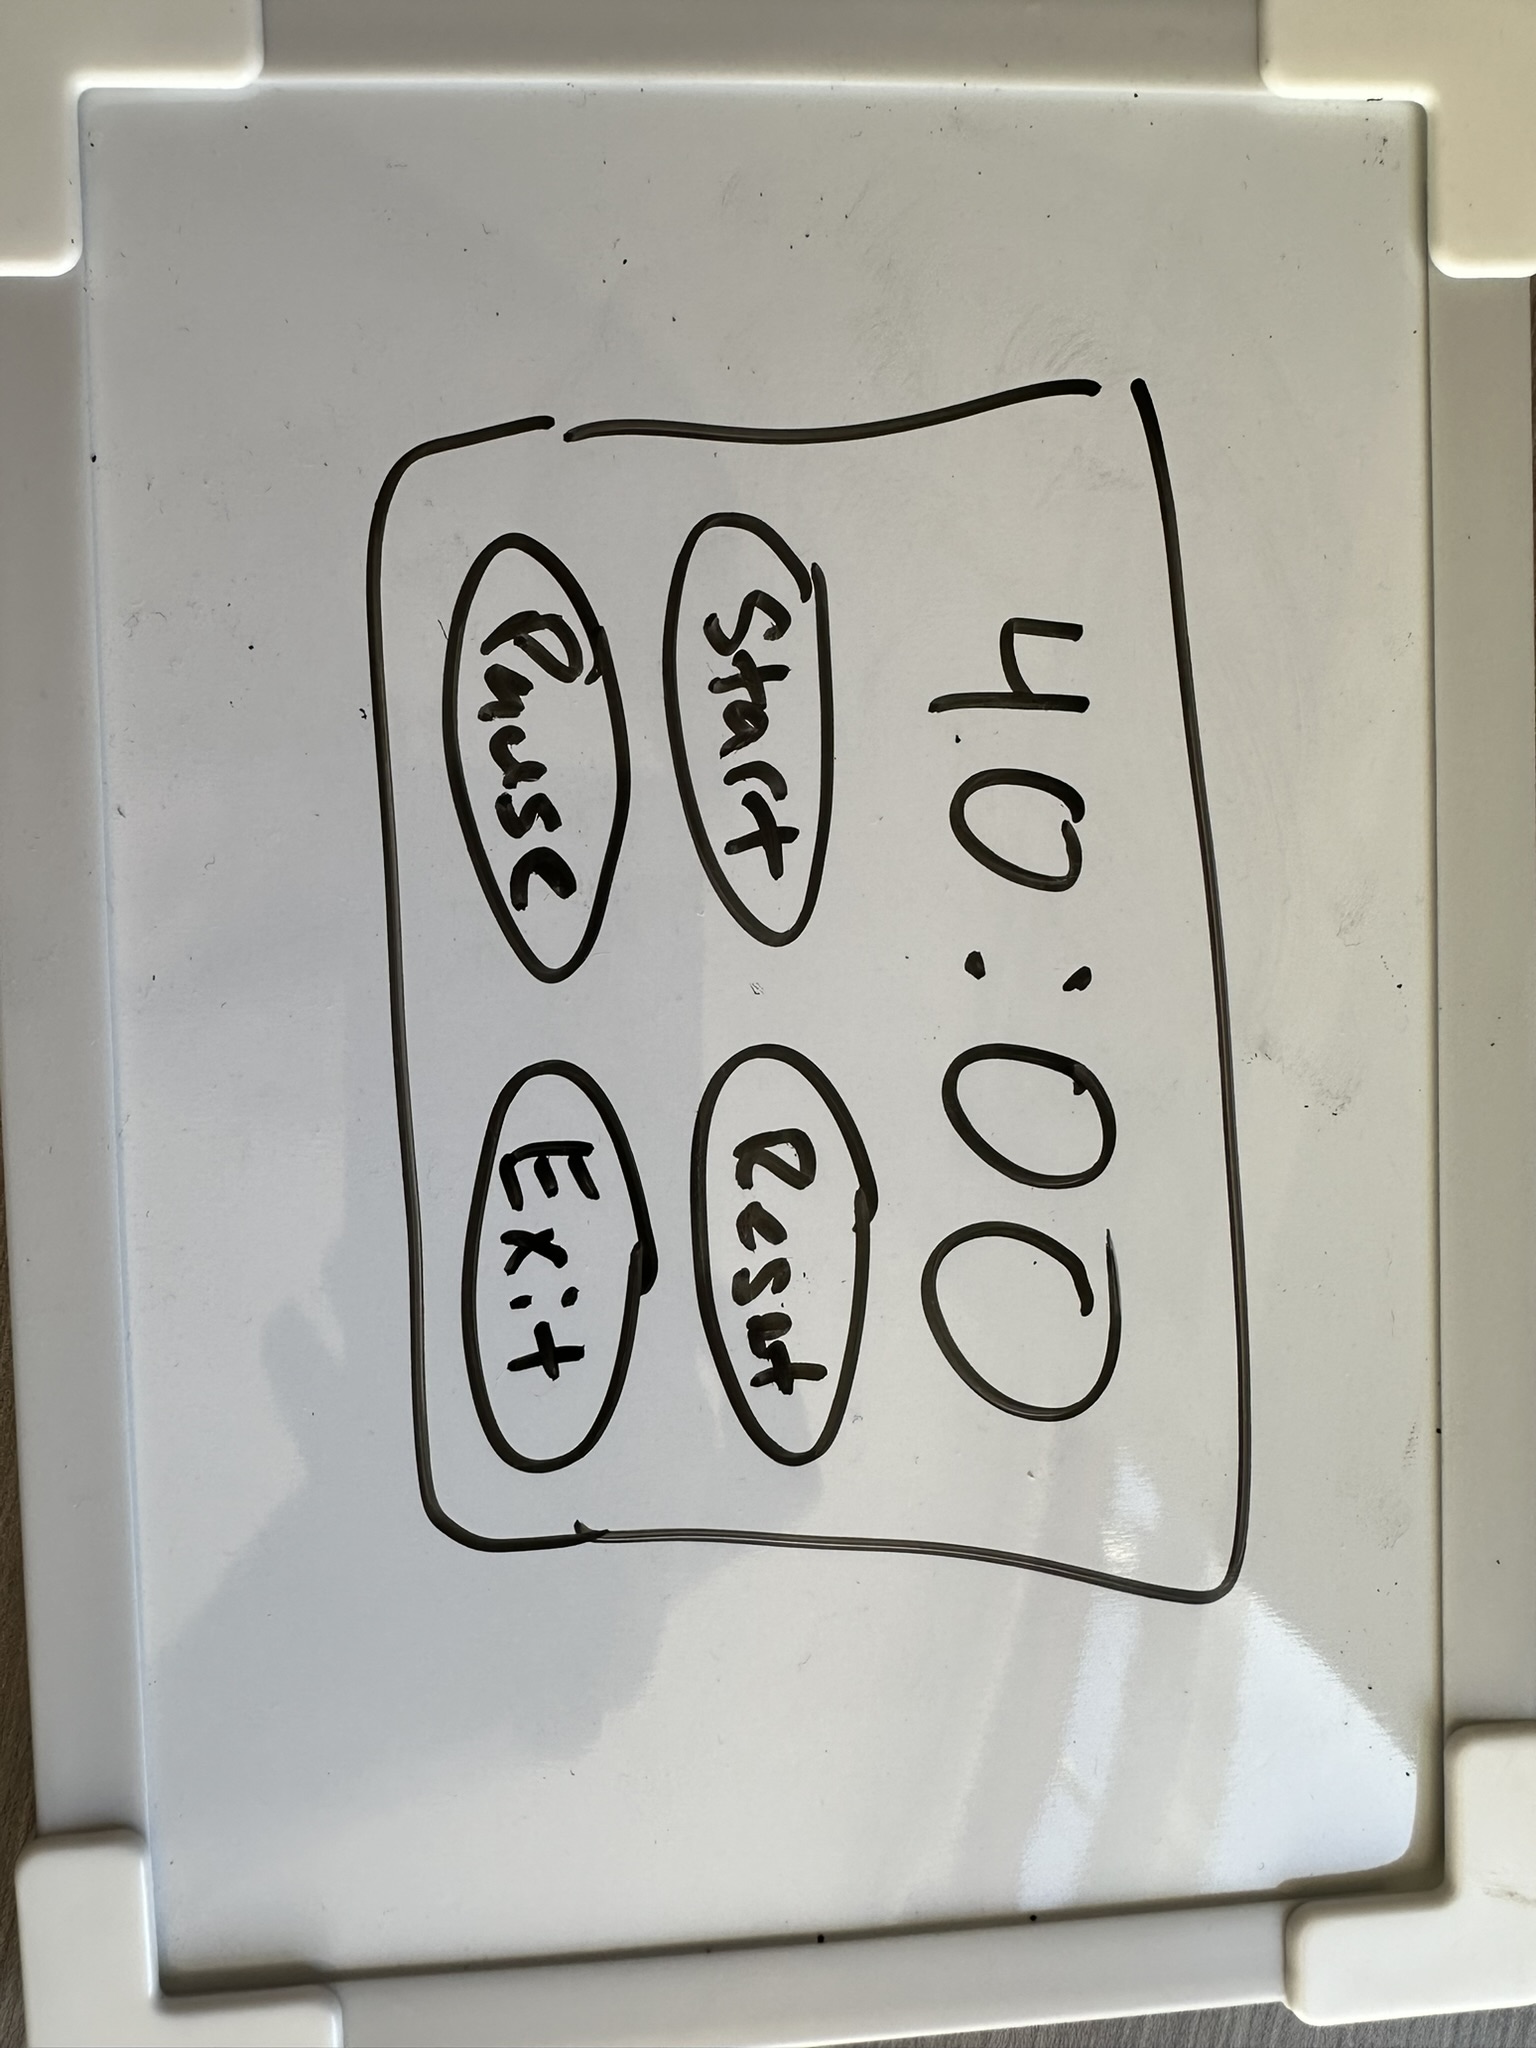 40:00
Start Resut
Pause Exit